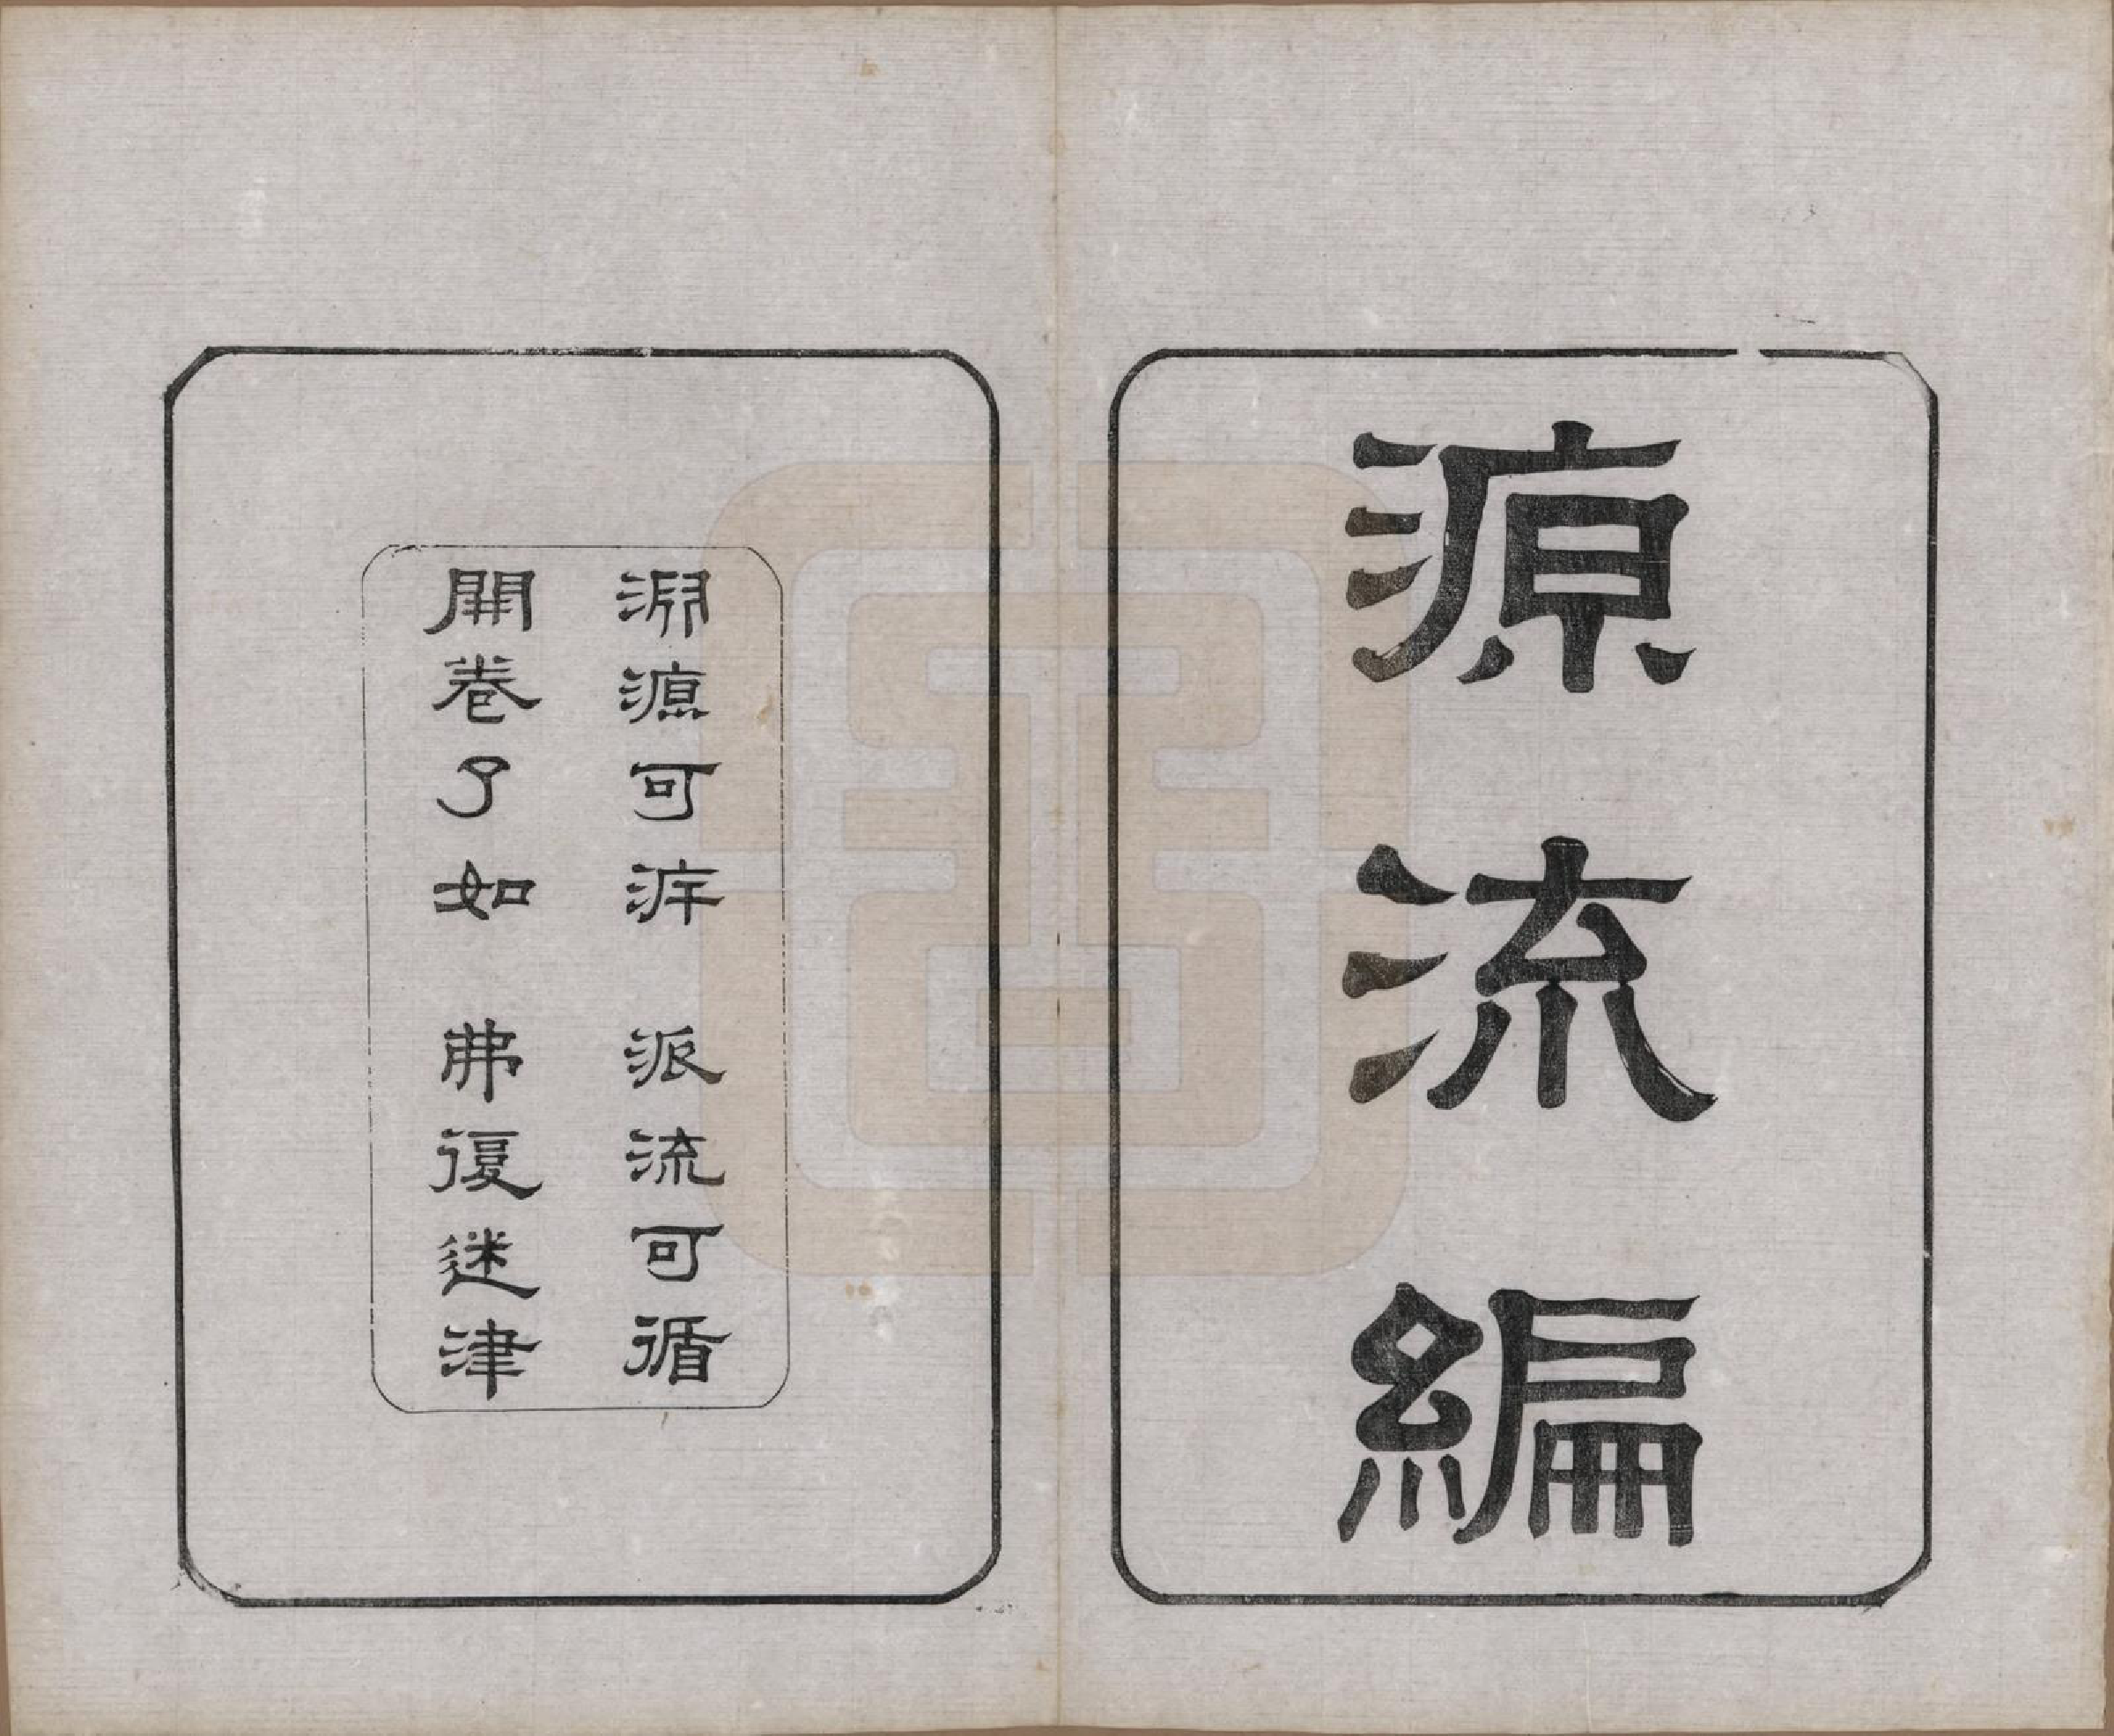 源流編
淵源可泝 派流可循
開卷了如 弗復迷津